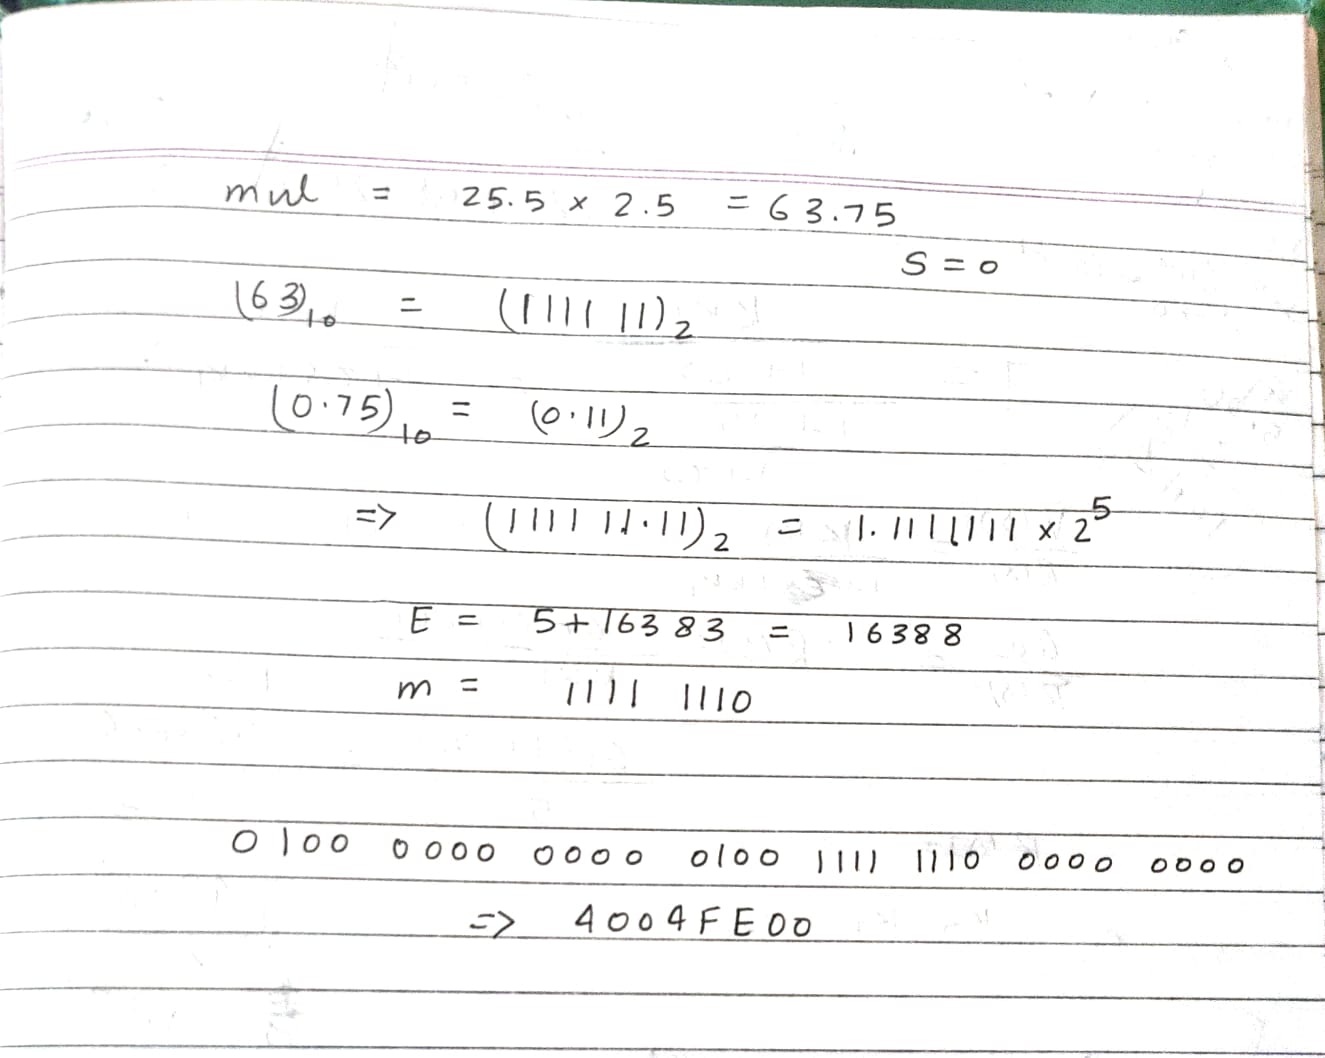 mul = 25.5 × 2.5 = 63.75
S = 0
(63)₁₀ = (1111 11)₂
(0.75)₁₀ = (0.11)₂
=> (1111 11.11)₂ = 1.1111111 × 2⁵
E = 5+16383 = 16388
m = 1111 1110
0100 0000 0000 0100 1111 1110 0000 0000
=> 4004FE00